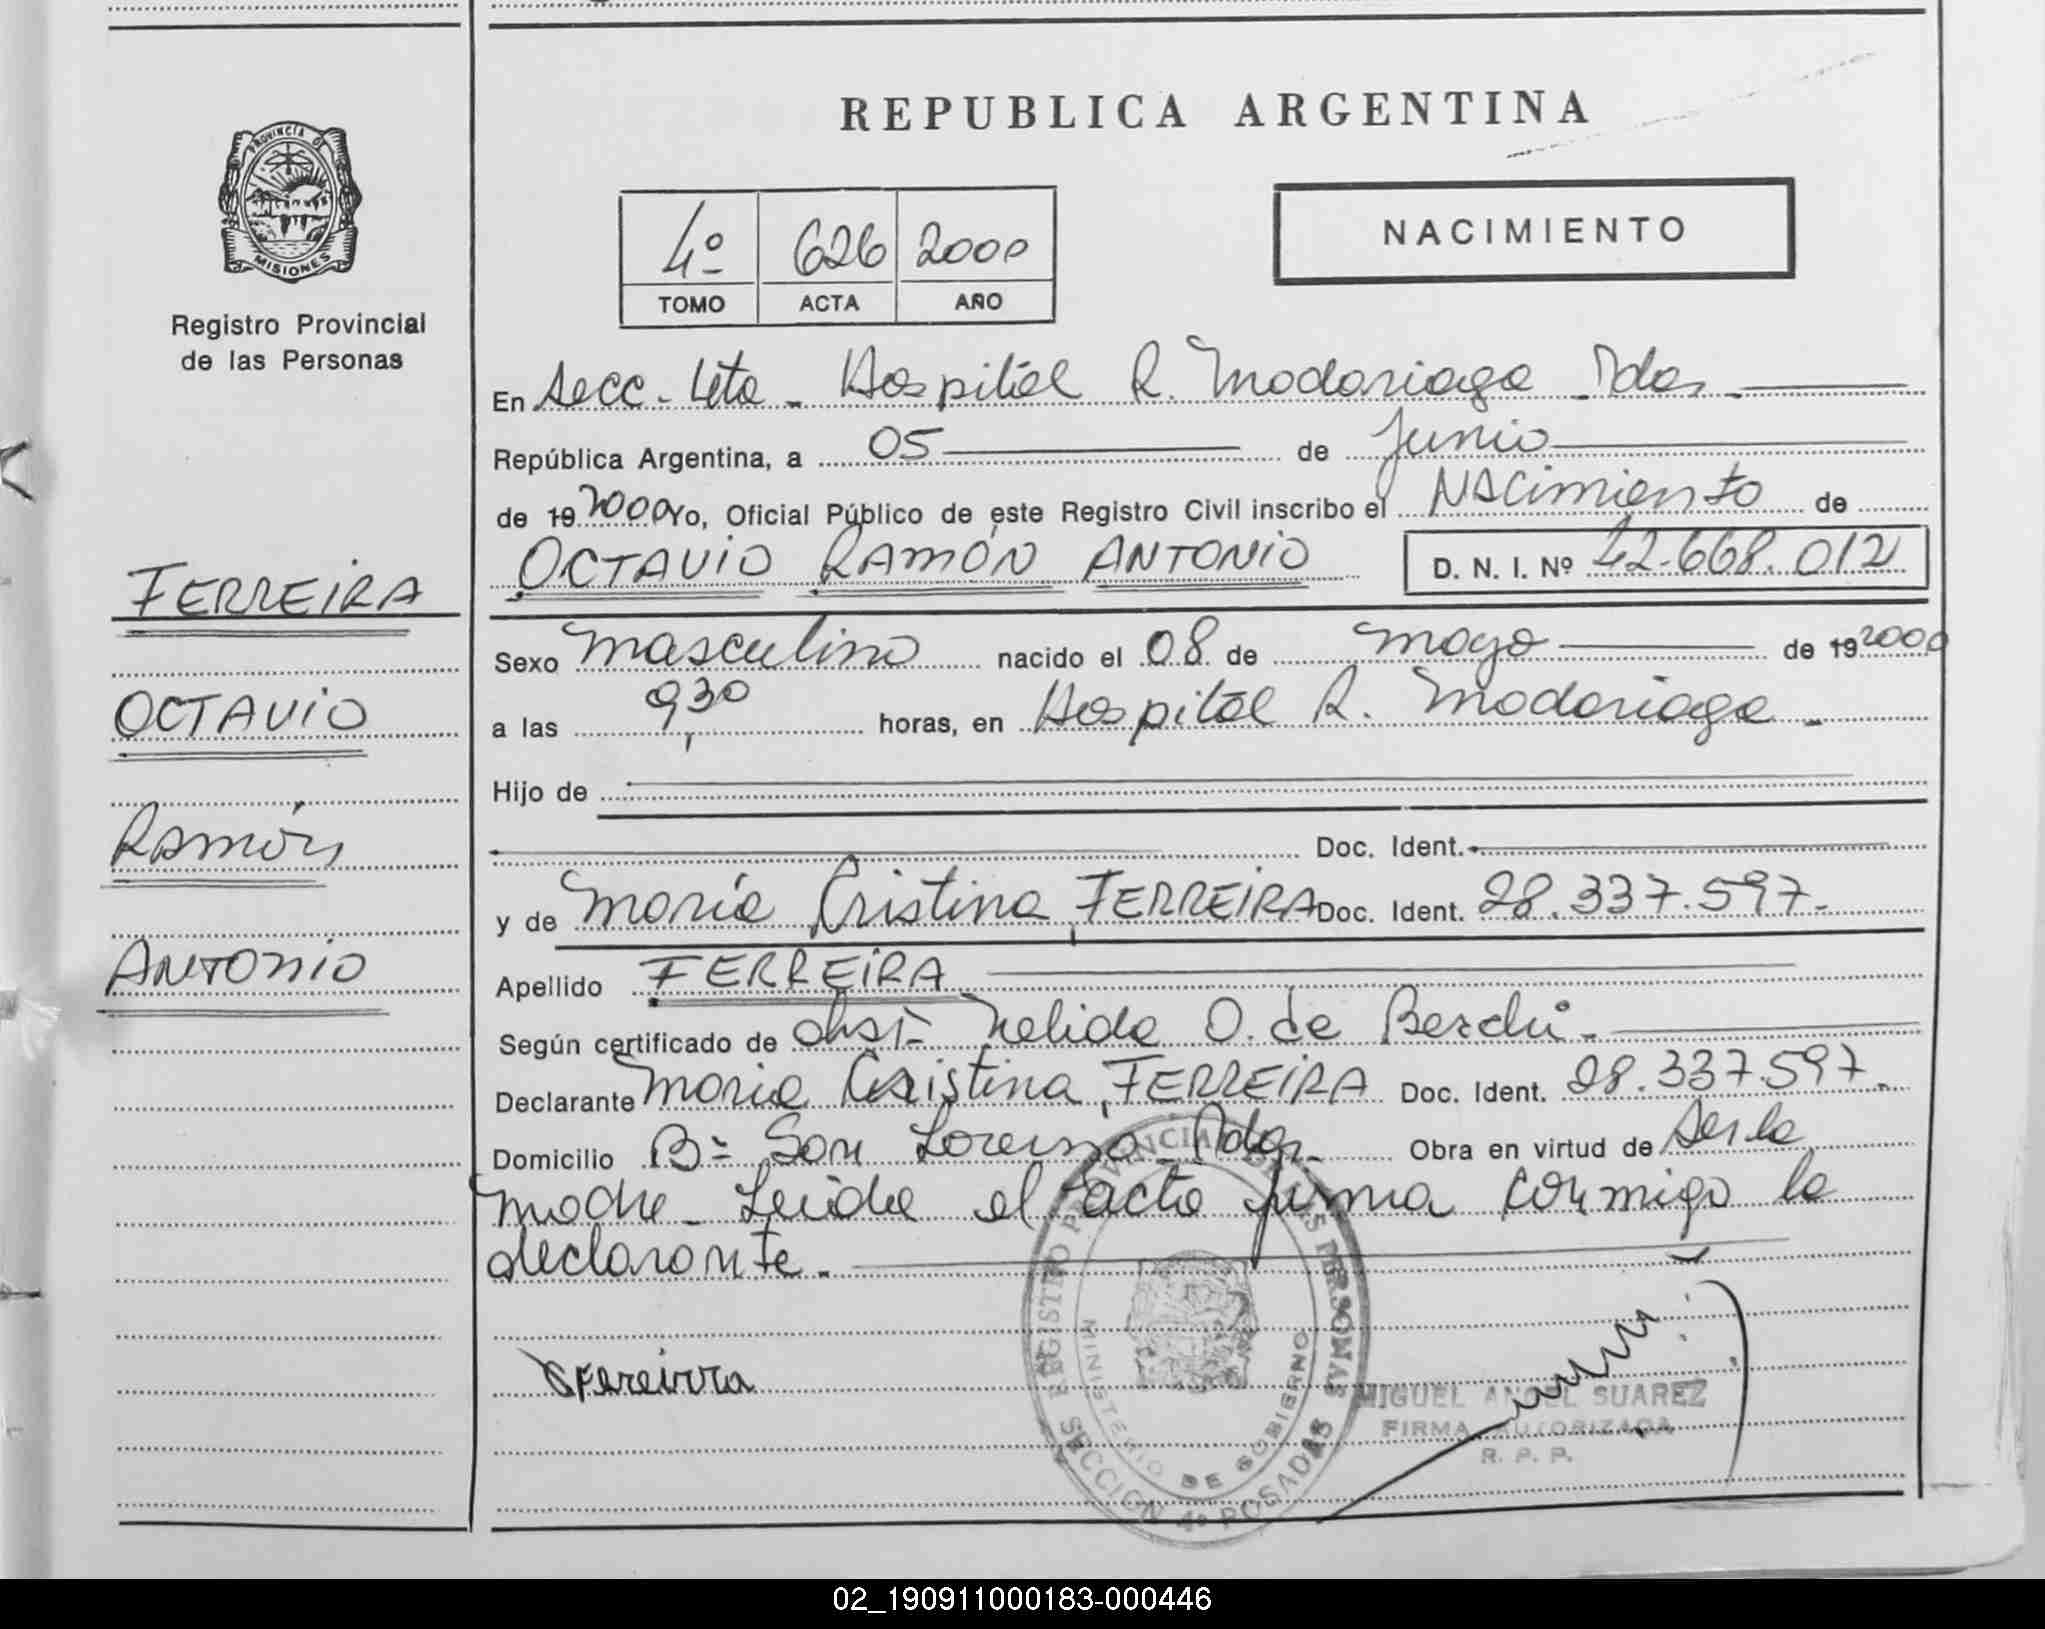 REPUBLICA ARGENTINA
PROVINCIA DE
MISIONES
Registro Provincial
de las Personas
4º 626 2000
TOMO ACTA AÑO
NACIMIENTO
En Secc. 4ta - Hospital R. Madariaga - Pdas.
República Argentina, a 05 de Junio
de 19 2000 Yo, Oficial Público de este Registro Civil inscribo el Nacimiento de
OCTAVIO RAMÓN ANTONIO D. N. I. Nº 42.668.012
FERREIRA
OCTAVIO
RAMÓN
ANTONIO
Sexo masculino nacido el 08 de mayo de 19 2000
a las 9,30 horas, en Hospital R. Madariaga -
Hijo de
Doc. Ident.
y de María Cristina, FERREIRA Doc. Ident. 28.337.597.-
Apellido FERREIRA
Según certificado de obst. Nelida O. de
Declarante María Cristina, FERREIRA Doc. Ident. 28.337.597.
Domicilio Bº San Lorenzo - Pdas. Obra en virtud de Ser la
madre - Leida el acta firma conmigo la
declarante.-
CFereirra
REGISTRO PROVINCIAL DE LAS PERSONAS
MINISTERIO DE GOBIERNO
SECCION 4º POSADAS
MIGUEL ANGEL SUAREZ
FIRMA AUTORIZADA
R. P. P.
02_190911000183-000446